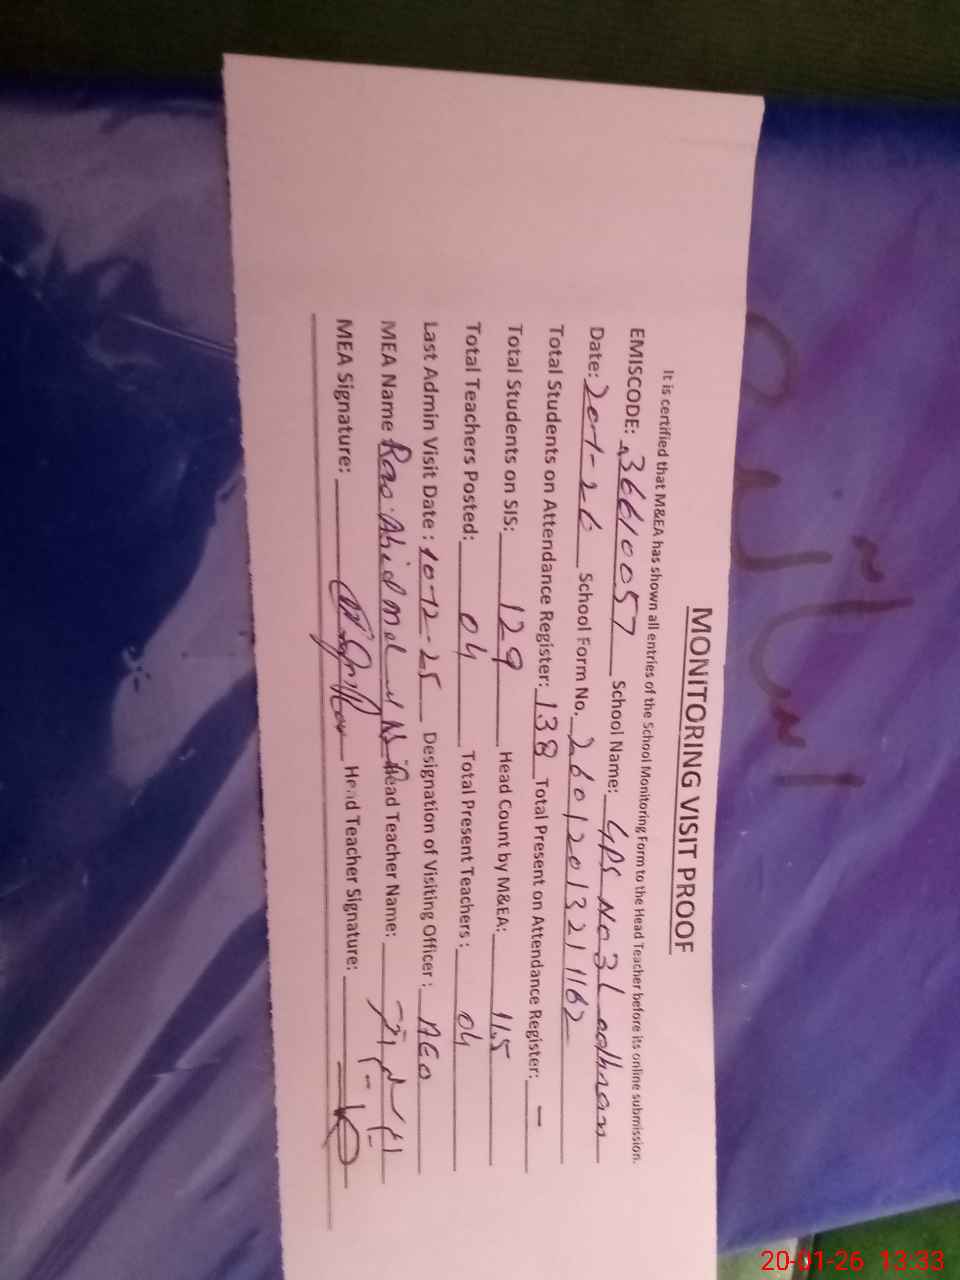 MONITORING VISIT PROOF
It is certified that M&EA has shown all entries of the School Monitoring Form to the Head Teacher before its online submission.
EMISCODE: 36610057 School Name: GPS No 3 Lodhran
Date: 20-1-26 School Form No. 2601201321162
Total Students on Attendance Register: 138 Total Present on Attendance Register: -
Total Students on SIS: 129 Head Count by M&EA: 115
Total Teachers Posted: 04 Total Present Teachers: 04
Last Admin Visit Date : 10-12-25 Designation of Visiting Officer : AEO
MEA Name Rao Abid Head Teacher Name:
MEA Signature: Head Teacher Signature:
20-01-26 13:33